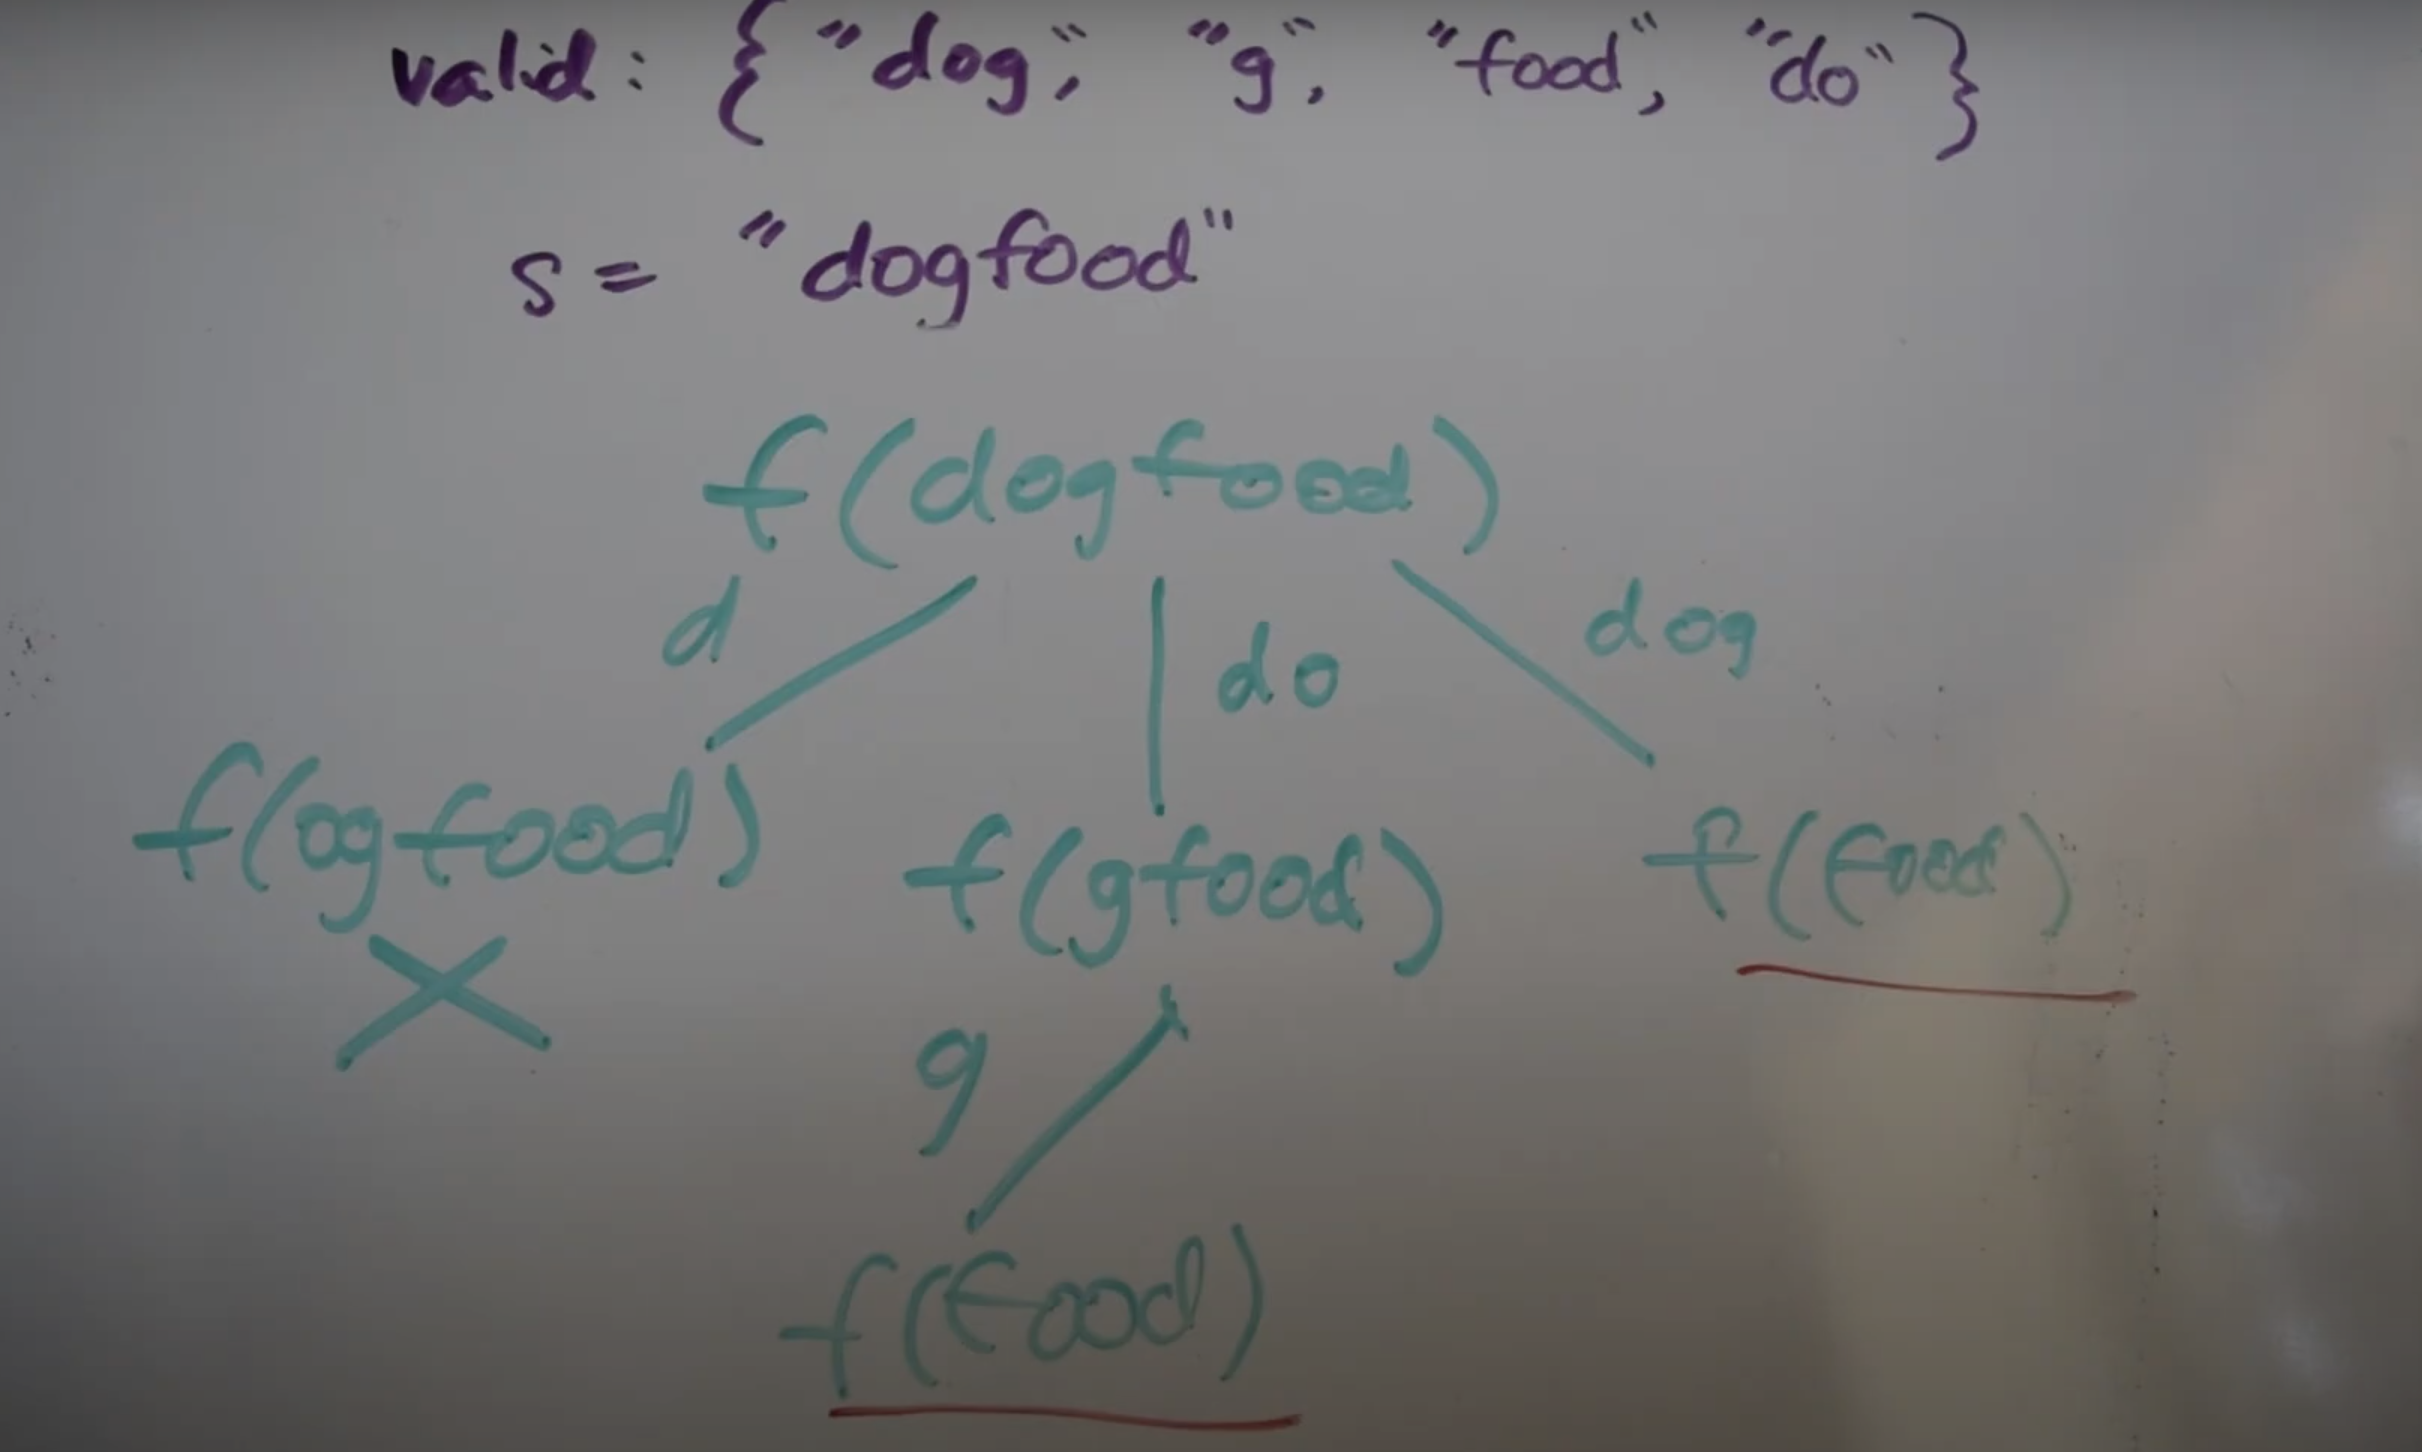 valid: { "dog", "g", "food", "do" }
s = "dogfood"
f(dogfood)
d
do
dog
f(ogfood)
f(gfood)
f(food)
g
f(food)